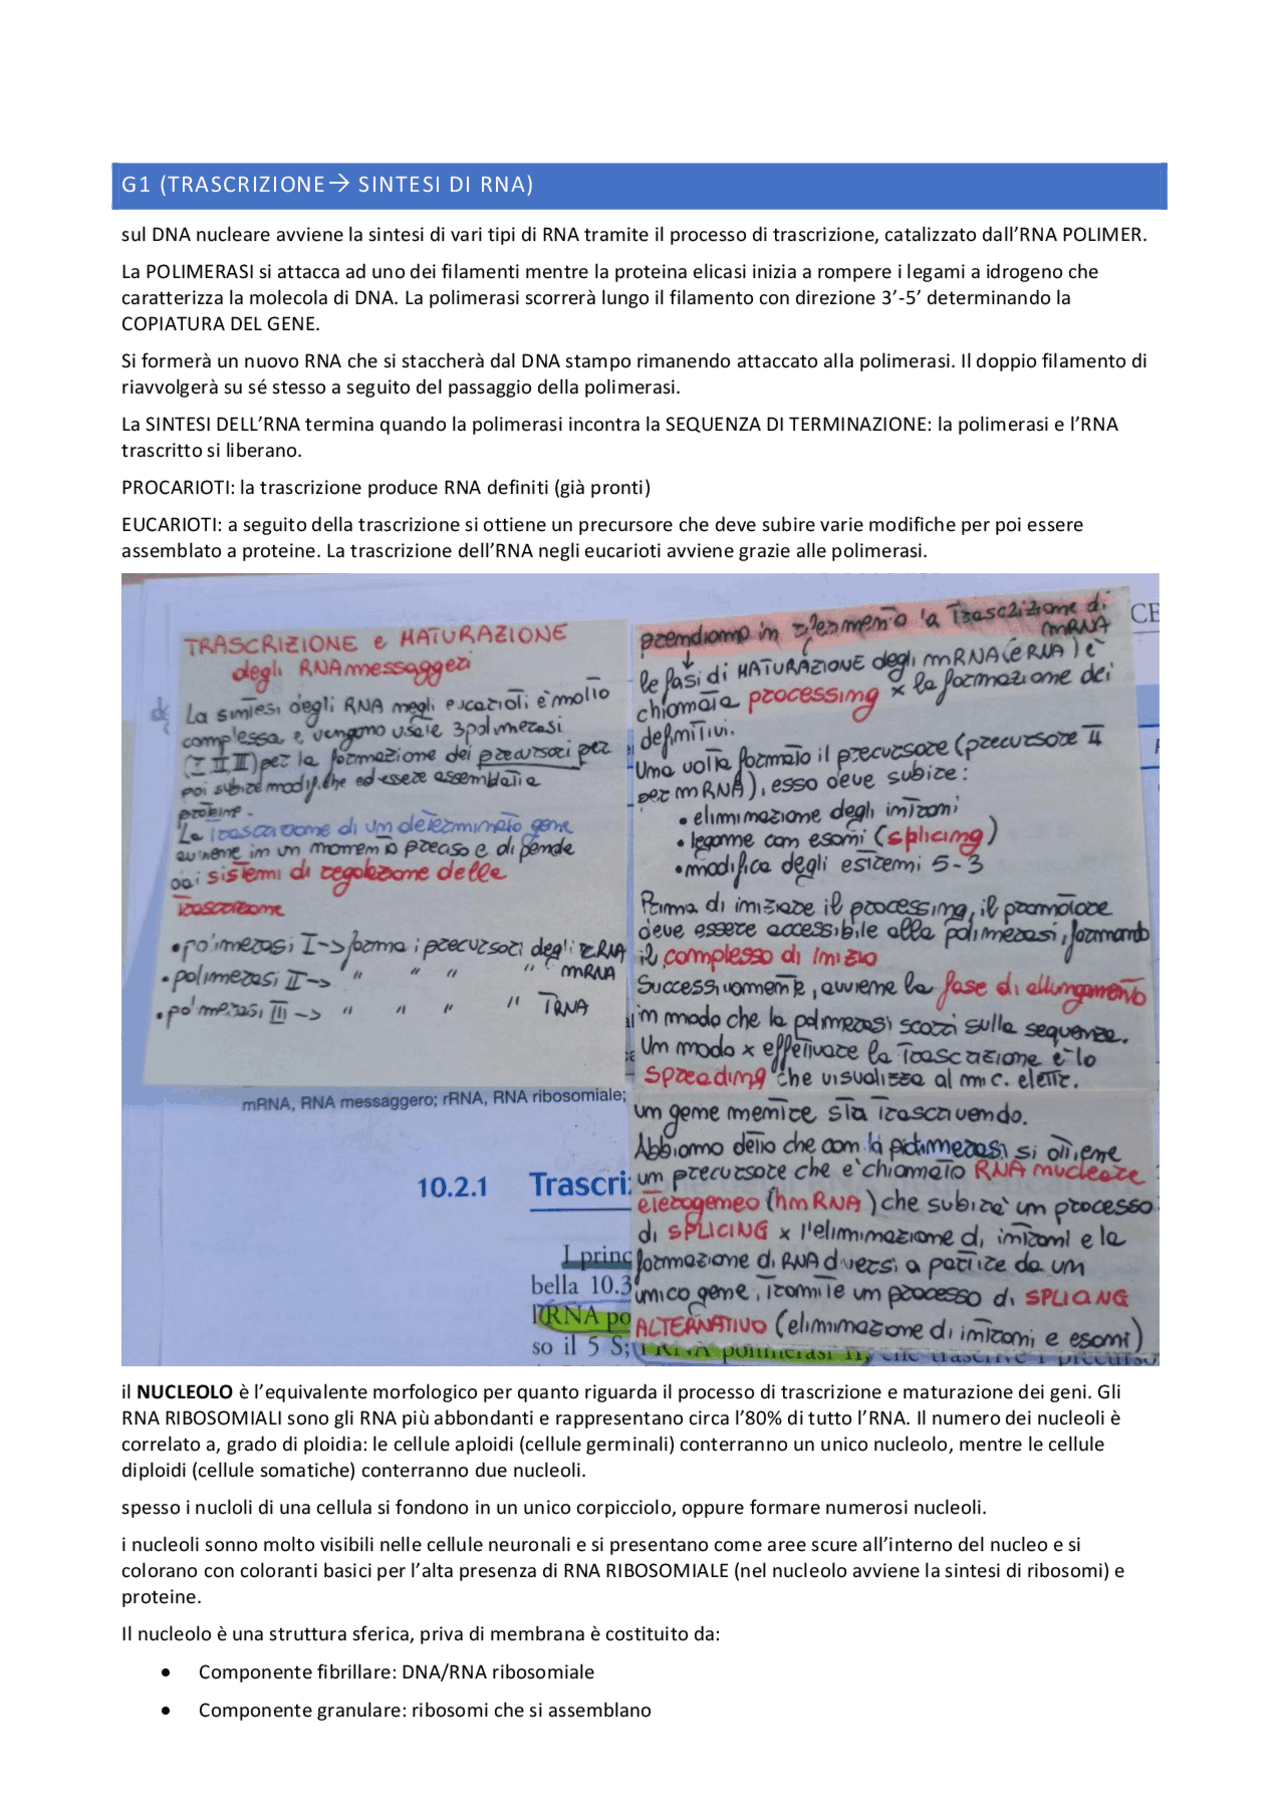 G1 (TRASCRIZIONE→ SINTESI DI RNA)
sul DNA nucleare avviene la sintesi di vari tipi di RNA tramite il processo di trascrizione, catalizzato dall'RNA POLIMER.
La POLIMERASI si attacca ad uno dei filamenti mentre la proteina elicasi inizia a rompere i legami a idrogeno che
caratterizza la molecola di DNA. La polimerasi scorrerà lungo il filamento con direzione 3'-5' determinando la
COPIATURA DEL GENE.
Si formerà un nuovo RNA che si staccherà dal DNA stampo rimanendo attaccato alla polimerasi. Il doppio filamento di
riavvolgerà su sé stesso a seguito del passaggio della polimerasi.
La SINTESI DELL'RNA termina quando la polimerasi incontra la SEQUENZA DI TERMINAZIONE: la polimerasi e l'RNA
trascritto si liberano.
PROCARIOTI: la trascrizione produce RNA definiti (già pronti)
EUCARIOTI: a seguito della trascrizione si ottiene un precursore che deve subire varie modifiche per poi essere
assemblato a proteine. La trascrizione dell'RNA negli eucarioti avviene grazie alle polimerasi.
TRASCRIZIONE e MATURAZIONE
degli RNA messaggeri
La sintesi degli RNA negli eucarioti è molto
complessa e vengono usate 3 polimerasi
(I II III) per la formazione dei precursori per
poi subire modifiche ed essere assemblati a
proteine.
La trascrizione di un determinato gene
avviene in un momento preciso e dipende
dai sistemi di regolazione delle
trascrizione
• polimerasi I -> forma i precursori degli rRNA
• polimerasi II -> " " " " mRNA
• polimerasi III -> " " " " TRNA
mRNA, RNA messaggero; rRNA, RNA ribosomiale;
10.2.1 Trascri
I princ
bella 10.3
l'RNA po
so il 5 S;
prendiamo in riferimento la trascrizione di
mRNA
le fasi di MATURAZIONE degli mRNA (e RNA) è
chiamata processing x la formazione dei
definitivi.
Una volta formato il precursore (precursore II
per mRNA), esso deve subire:
• eliminazione degli introni
• legame con esoni (splicing)
• modifica degli esterni 5-3
Prima di iniziare il processing, il promotore
deve essere accessibile alla polimerasi, formando
il complesso di inizio
Successivamente, avviene la fase di allungamento
in modo che la polimerasi scorri sulla sequenza.
Un modo x effettuare la trascrizione è lo
spreading che visualizza al mic. elettr.
un gene mentre sta trascrivendo.
Abbiamo detto che con la polimerasi si ottiene
un precursore che e' chiamato RNA nucleare
eterogeneo (hnRNA) che subira' un processo
di SPLICING x l'eliminazione di introni e la
formazione di RNA diversi a partire da un
unico gene, tramite un processo di SPLICING
ALTERNATIVO (eliminazione di introni e esoni)
CE
il NUCLEOLO è l'equivalente morfologico per quanto riguarda il processo di trascrizione e maturazione dei geni. Gli
RNA RIBOSOMIALI sono gli RNA più abbondanti e rappresentano circa l'80% di tutto l'RNA. Il numero dei nucleoli è
correlato a, grado di ploidia: le cellule aploidi (cellule germinali) conterranno un unico nucleolo, mentre le cellule
diploidi (cellule somatiche) conterranno due nucleoli.
spesso i nucloli di una cellula si fondono in un unico corpicciolo, oppure formare numerosi nucleoli.
i nucleoli sonno molto visibili nelle cellule neuronali e si presentano come aree scure all'interno del nucleo e si
colorano con coloranti basici per l'alta presenza di RNA RIBOSOMIALE (nel nucleolo avviene la sintesi di ribosomi) e
proteine.
Il nucleolo è una struttura sferica, priva di membrana è costituito da:
• Componente fibrillare: DNA/RNA ribosomiale
• Componente granulare: ribosomi che si assemblano